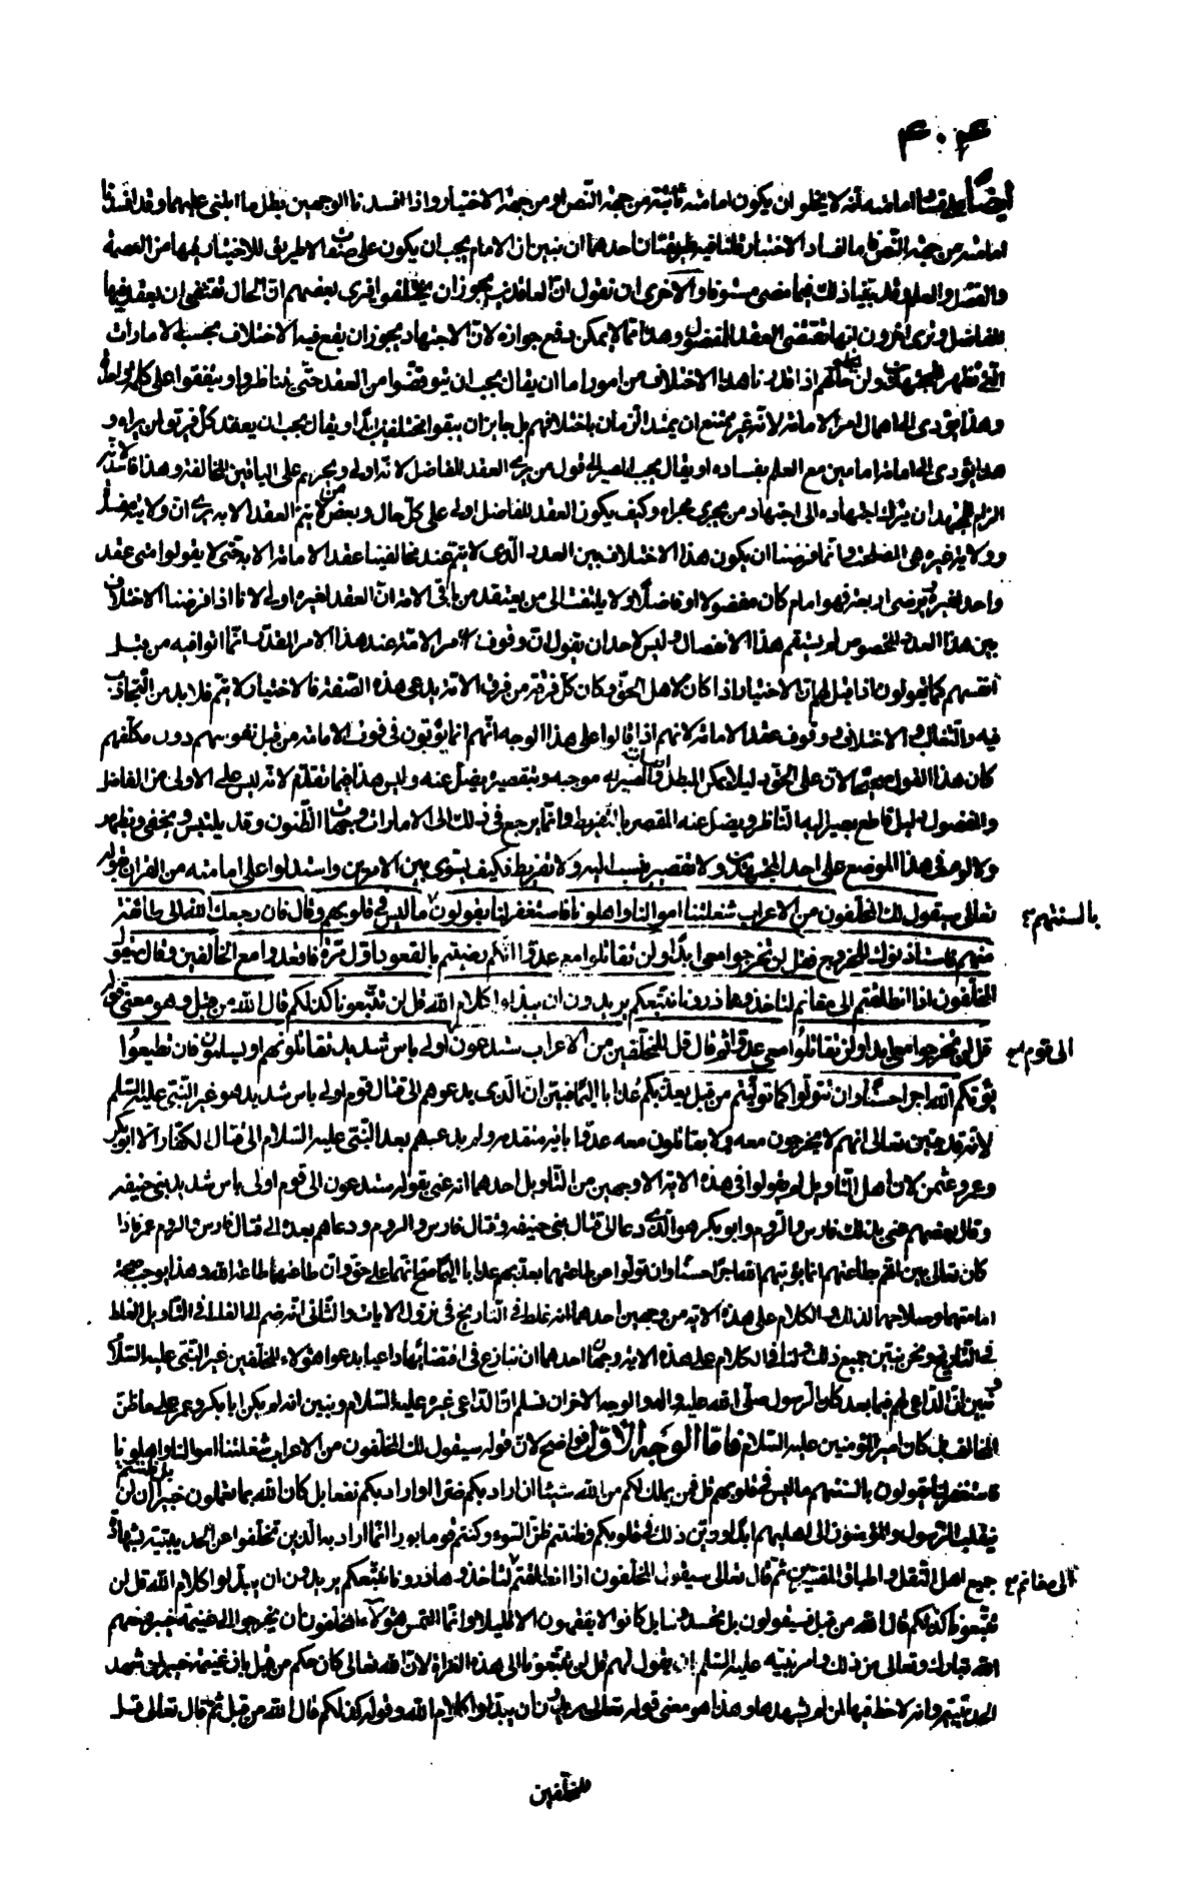 ۴۰۴
أيضا على فساد امامته أنه لا يخلو ان يكون امامته ثابتة من جهة النص او من جهة الاختيار واذا افسدنا الوجهين بطل ما ابتنى عليهما وقد افسدنا
امامته من جهة النص فاما فساد الاختيار فلنا فيه طريقتان احدهما ان نبين ان الامام يجب ان يكون على صفات لا طريق للاختيار اليها من العصمة
والفضل والعلم وقد بينا ذلك فيما مضى مستوفا والاخرى ان نقول ان العاقدين يجوز ان يختلفوا فيرى بعضهم ان الحال تقتضى ان يعقد فيها
للفاضل ويرى آخرون انها تقتضى العقد للمفضول وهذا مما لا يمكن دفع جوازه لان الاجتهاد يجوز ان يقع فيه الاختلاف بحسب الامارات
التى تظهر للمجتهدين ولن يخلو حالهم اذا قدرنا هذا الاختلاف من امور اما ان يقال يجب ان يتوقفوا من العقد حتى يتناظروا ويتفقوا على كلمة واحدة
وهذا يؤدى الى اهمال امر الامامة لانه غير ممتنع ان يمتد الزمان باختلافهم بل جايز ان يبقوا مختلفين ابدا او يقال يجب ان يعقد كل فريق لمن يراه و
هذا يؤدى الى امامة امامين مع العلم بفساده او يقال يجب المصير الى قول من يرى العقد للفاضل لانه اولى ويحرم على الباقين المخالفة وهذا فاسد لانه
الزام للمجتهد ان يترك اجتهاده الى اجتهاد من يجرى مجراه وكيف يكون العقد للفاضل اولى على كل حال وبعض من لا يتم العقد الا به يرى ان ولايته مفسدة
وولاية غيره هى المصلحة وانما فرضنا ان يكون هذا الاختلاف بين العدد الذى لا يتم عند مخالفينا عقد الامامة الا به حتى لا يقولوا متى عقد
واحد لغيره برضى اربعة فهو امام كان مفضولا او فاضلا ولا يلتفت الى من يعتقد من باقى الامة ان العقد لغيره اولى لانا اذا فرضنا الاختلاف
بين هذا العدد المخصوص لم يستقم هذا الانفصال وليس لاحد ان يقول ان وقوف امر الامة عند هذا الامر المقدر انما اتوا فيه من قبل
انفسهم كما تقولون اذا قيل لهم ان الاختيار اذا كان لاهل الحق وكان كل فرقة من فرق الامة يدعى هذه الصفة فالاختيار لا يتم فلا بد من التجاذب
فيه والتغالب والاختلاف ووقوف عقد الامامة لانهم اذا قالوا على هذا الوجه انهم انما يؤتون فى فوت الامامة من قبل نفوسهم دون مكلفهم
كان هذا القول صحيحا لان على الحق دليلا يمكن المبطل اصابته فالمصير اليه موجبه وبتقصيره يضل عنه وليس هذا فيما تقدم لانه ليس على الاولى من الفاضل
والمفضول دليل قاطع يصير اليه الناظر ويضل عنه المقصر بالتفريط وانما يرجع فى ذلك الى الامارات وجهات الظنون وقد يلتبس ويخفى ويظهر
ولا لوم فى هذا الموضع على احد المجتهدين ولا تقصير ينسب اليه ولا تفريط فكيف يستوى بين الامرين واستدلوا على امامته من القرآن بقوله
تعالى سيقول لك المخلفون من الاعراب شغلتنا اموالنا واهلونا فاستغفر لنا يقولون ما ليس فى قلوبهم وقال فان رجعك الله الى طائفة
بالسنتهم
منهم فاستأذنوك للخروج فقل لن تخرجوا معى ابدا ولن تقاتلوا معى عدوا انكم رضيتم بالقعود اول مرة فاقعدوا مع الخالفين وقال سيقول
المخلفون اذا انطلقتم الى مغانم لتأخذوها ذرونا نتبعكم يريدون ان يبدلوا كلام الله قل لن تتبعونا كذلكم قال الله من قبل وهو معنى قوله
قل لن تخرجوا معى ابدا ولن تقاتلوا معى عدوا ثم قال قل للمخلفين من الاعراب ستدعون اولى باس شديد تقاتلونهم او يسلمون فان تطيعوا
الى قوم
يؤتكم الله اجرا حسنا وان تتولوا كما توليتم من قبل يعذبكم عذابا اليما فبين ان الذى يدعوهم الى قتال قوم اولى باس شديد هو غير النبى عليه السلم
لانه قد بين تعالى انهم لا يخرجون معه ولا يقاتلون معه عدوا باية متقدمة ولم يدعهم بعد النبى عليه السلام الى قتال الكفار الا ابوبكر
وعمر وعثمن لان اهل التأويل لم يقولوا فى هذه الاية الا وجهين من التاويل احدهما انه عنى بقوله ستدعون الى قوم اولى باس شديد بنى حنيفه
وقال بعضهم عنى بذلك فارس والروم وابو بكر هو الذى دعا الى قتال بنى حنيفه وقتال فارس والروم ودعاهم بعده الى قتال فارس والروم عمر فاذا
كان تعالى بين انهم بطاعتهم انما يؤتيهم الله اجرا حسنا وان تولوا عن طاعتهما يعذبهم عذابا اليما صح انهما على حق وان طاعتهما طاعة الله وهذا يوجب صحة
امامتهما وصلاحهما لذلك والكلام على هذه الاية من وجهين احدهما انه غلط فى التاريخ فى نزول الايات والثانى انه ضم الى الغلط فى التاويل الغلط
فى التاريخ ونحن نبين جميع ذلك ولنا فى الكلام على هذه الاية وجهان احدهما ان ننازع فى اقتضائها داعيا يدعو هؤلاء المخلفين غير النبى عليه السلام
ونبين ان الداعى لهم فيما بعد كان الرسول صلى الله عليه واله والوجه الاخر ان نسلم ان الداعى غيره عليه السلام ونبين انه لم يكن ابا بكر وعمر على ما ظن
المخالف بل كان امير المؤمنين عليه السلام فاما الوجه الاول فواضح لان قوله سيقول لك المخلفون من الاعراب شغلتنا اموالنا واهلونا
فاستغفر لنا يقولون بالسنتهم ما ليس فى قلوبهم قل فمن يملك لكم من الله شيئا ان اراد بكم ضرا او اراد بكم نفعا بل كان الله بما تعملون خبيرا بل ظننتم ان لن
ينقلب الرسول والمؤمنون الى اهليهم ابدا وزين ذلك فى قلوبكم وظننتم ظن السوء وكنتم قوما بورا انما اراد به الذين تخلفوا عن الحديبية بشهادة
جميع اهل النقل واطباق المفسرين ثم قال تعالى سيقول المخلفون اذا انطلقتم لتأخذوها ذرونا نتبعكم يريدون ان يبدلوا كلام الله قل لن
الى مغانم
تتبعونا كذلكم قال الله من قبل فسيقولون بل تحسدوننا بل كانوا لا يفقهون الا قليلا وانما التمس هؤلاء المخلفون ان يخرجوا الى غنيمة خيبر فمنعهم
الله تبارك وتعالى من ذلك وامر نبيه عليه السلم ان يقول لهم قل لن تتبعونا الى هذه الغزاة لان الله تعالى كان حكم من قبل بان غنيمة خيبر لمن شهد
الحديبية وانه لا حظ فيها لمن لم يشهدها وهذا هو معنى قوله تعالى يريدون ان يبدلوا كلام الله وقوله كذلكم قال الله من قبل ثم قال تعالى قل
للمخلفين